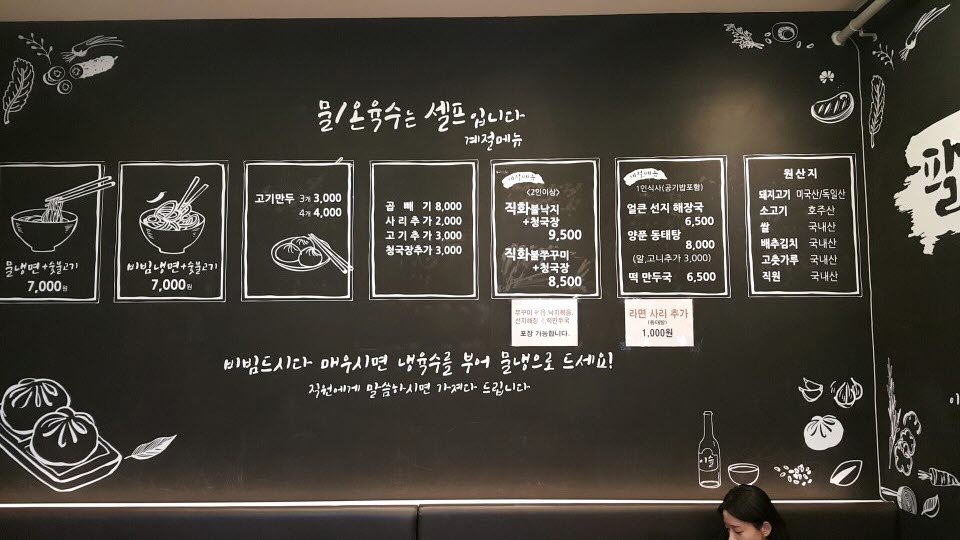 물/온육수는 셀프입니다
계절메뉴
물냉면+숯불고기
7,000원
비빔냉면+숯불고기
7,000원
고기만두 3개 3,000
4개 4,000
곱빼기 8,000
사리추가 2,000
고기추가 3,000
청국장추가 3,000
<2인이상>
직화불낙지
+청국장
9,500
직화불쭈꾸미
+청국장
8,500
1인식사(공기밥포함)
얼큰 선지 해장국
6,500
양푼 동태탕
8,000
(알,고니추가 3,000)
떡 만두국 6,500
원산지
돼지고기 미국산/독일산
소고기 호주산
쌀 국내산
배추김치 국내산
고춧가루 국내산
직원 국내산
포장 가능합니다.
라면 사리 추가
(동태탕)
1,000원
비빔드시다 매우시면 냉육수를 부어 물냉으로 드세요!
직원에게 말씀하시면 가져다 드립니다
이슬